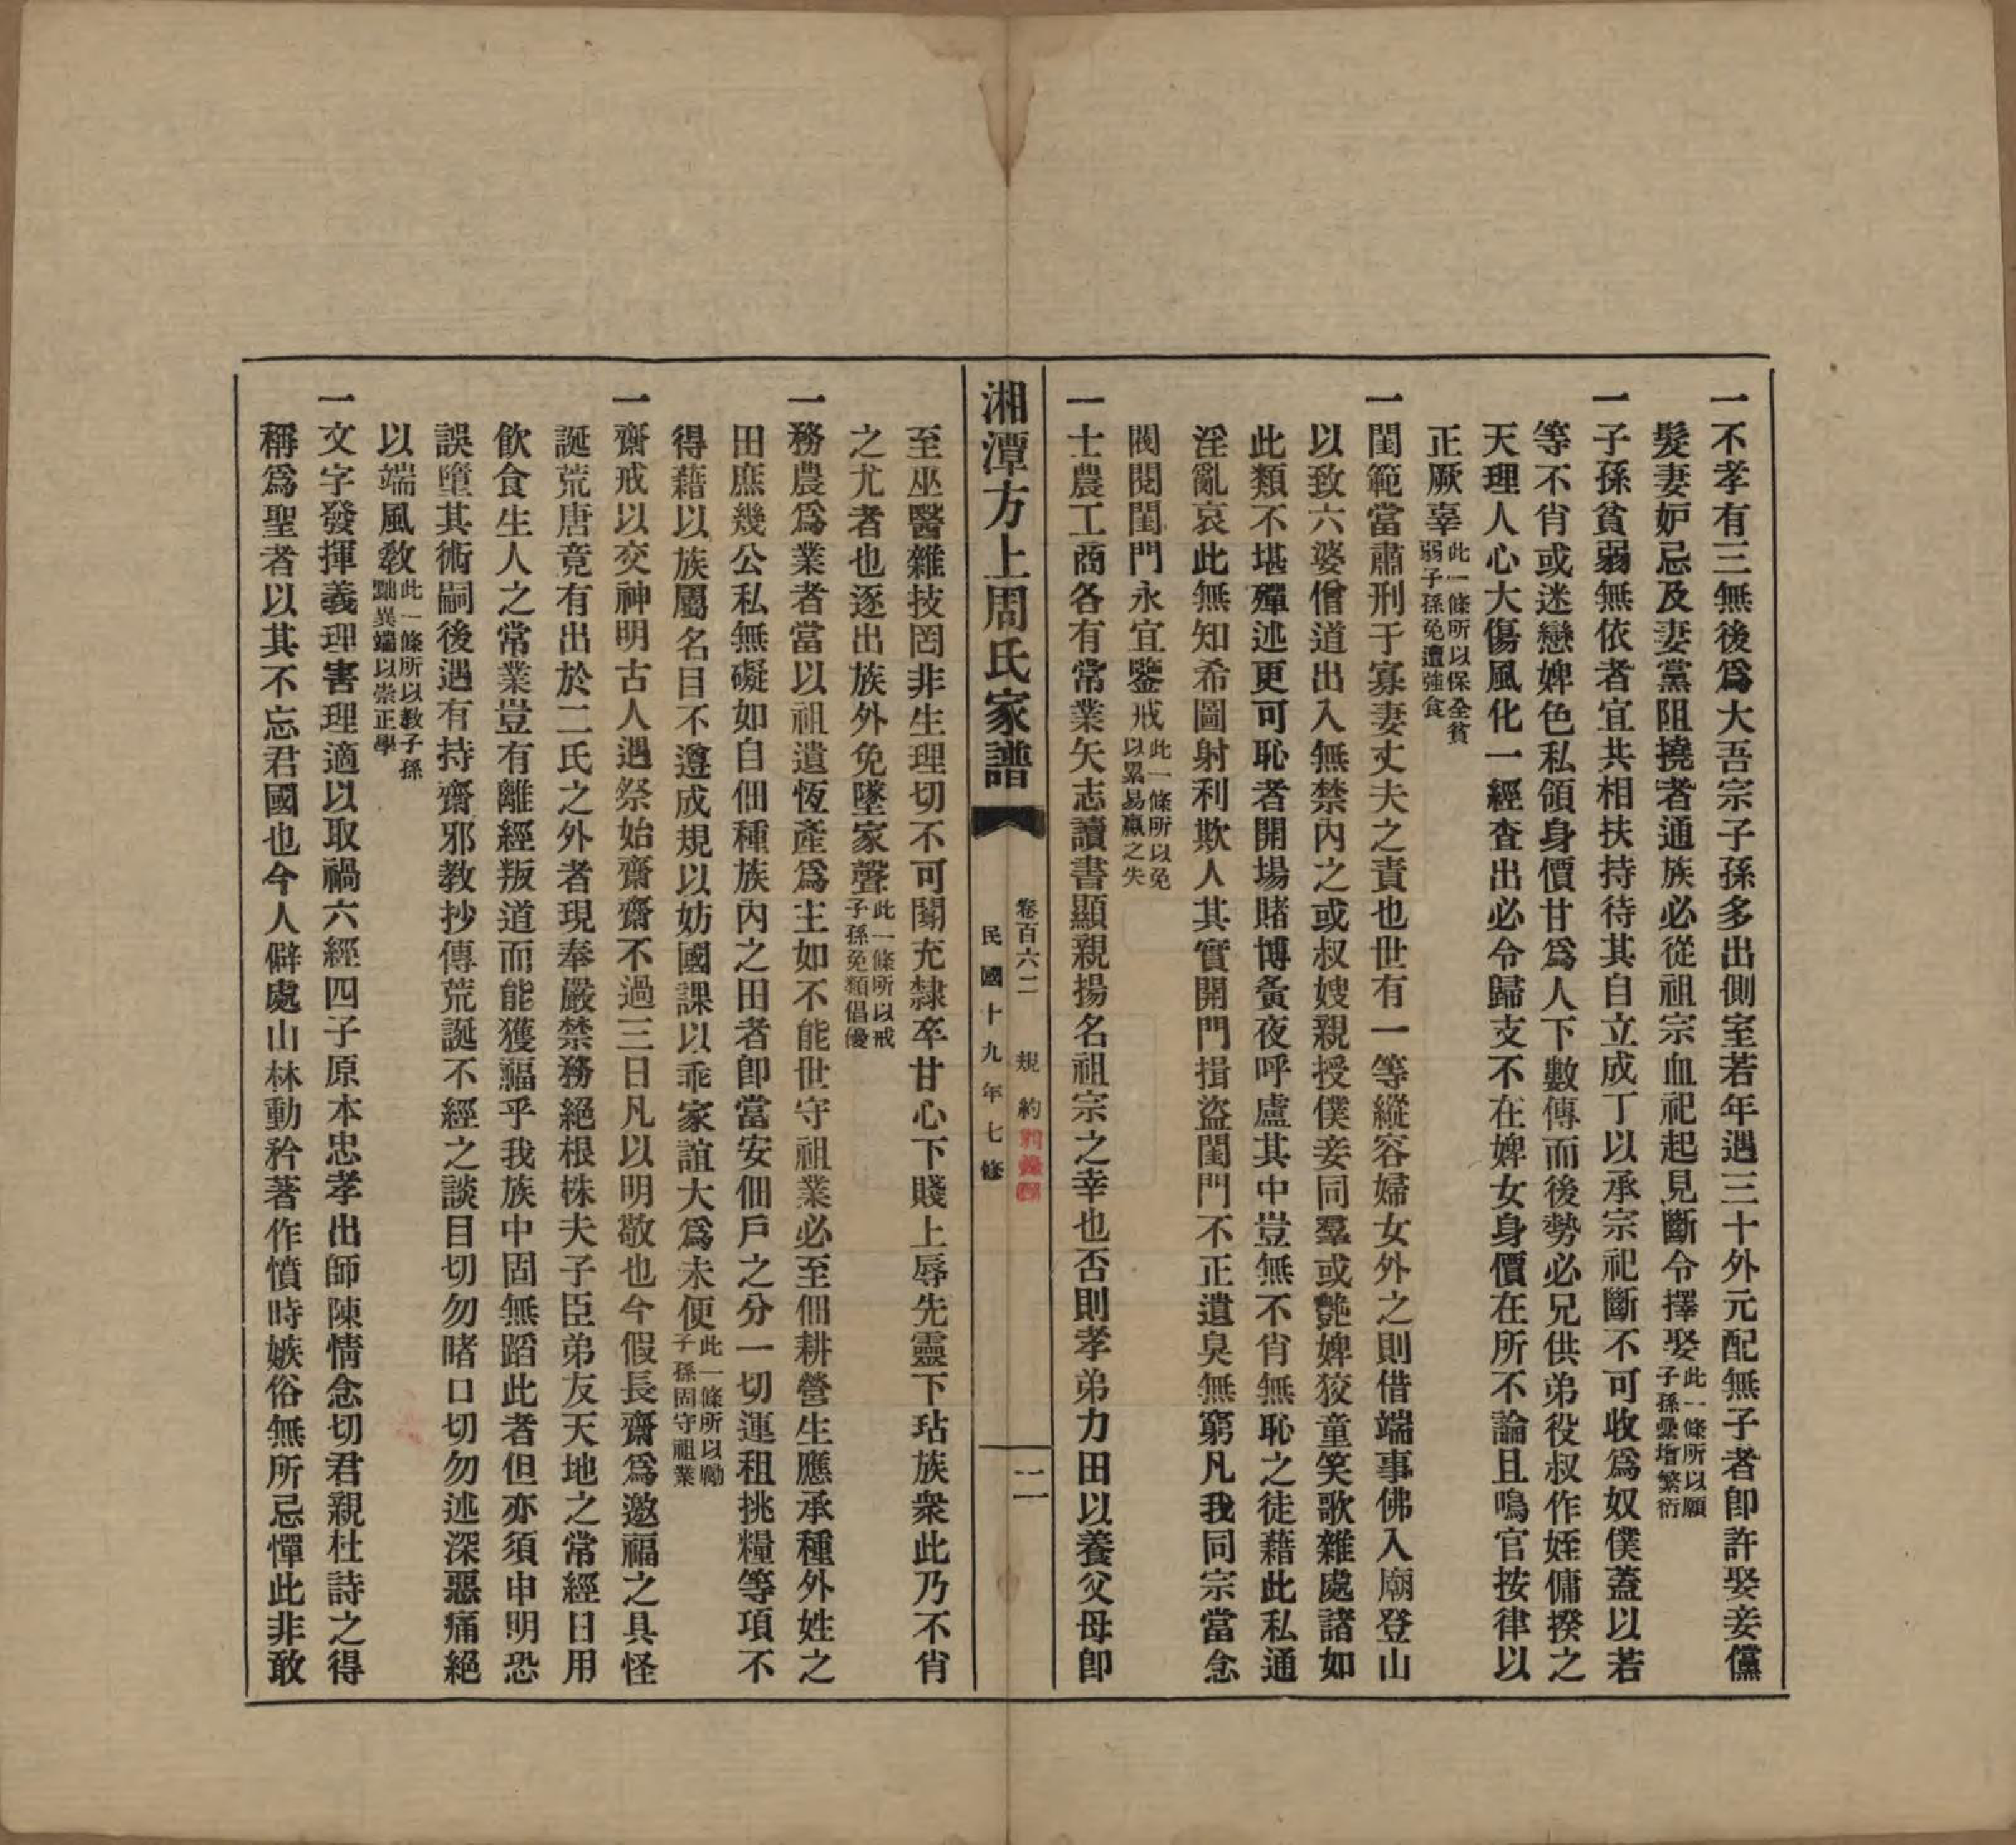 一不孝有三無後爲大吾宗子孫多出側室若年遇三十外元配無子者卽許娶妾儻
髮妻妒忌及妻黨阻撓者通族必從祖宗血祀起見斷令擇娶此一條所以願子孫螽增繁衍
一子孫貧弱無依者宜共相扶持待其自立成丁以承宗祀斷不可收爲奴僕蓋以若
等不肖或迷戀婢色私領身價甘爲人下數傳而後勢必兄供弟役叔作姪傭揆之
天理人心大傷風化一經查出必令歸支不在婢女身價在所不論且鳴官按律以
正厥辜此一條所以保全貧弱子孫免遭強食
一閨範當肅刑于寡妻丈夫之責也世有一等縱容婦女外之則借端事佛入廟登山
以致六婆僧道出入無禁內之或叔嫂親授僕妾同羣或艶婢狡童笑歌雜處諸如
此類不堪殫述更可恥者開場賭博夤夜呼盧其中豈無不肖無恥之徒藉此私通
淫亂哀此無知希圖射利欺人其實開門揖盜閨門不正遺臭無窮凡我同宗當念
閥閱閨門永宜鑒戒此一條所以免以累易贏之失
一士農工商各有常業矢志讀書顯親揚名祖宗之幸也否則孝弟力田以養父母卽
湘潭方上周氏家譜
卷百六二 規約
民國十九年七修
二
至巫醫雜技罔非生理切不可闒充隸卒甘心下賤上辱先靈下玷族衆此乃不肖
之尤者也逐出族外免墜家聲此一條所以戒子孫免類倡優
一務農爲業者當以祖遺恆產爲主如不能世守祖業必至佃耕營生應承種外姓之
田庶幾公私無礙如自佃種族內之田者卽當安佃戶之分一切運租挑糧等項不
得藉以族屬名目不遵成規以妨國課以乖家誼大爲未便此一條所以勵子孫固守祖業
一齋戒以交神明古人遇祭始齋齋不過三日凡以明敬也今假長齋爲邀福之具怪
誕荒唐竟有出於二氏之外者現奉嚴禁務絕根株夫子臣弟友天地之常經日用
飲食生人之常業豈有離經叛道而能獲福乎我族中固無蹈此者但亦須申明恐
誤墮其術嗣後遇有持齋邪教抄傳荒誕不經之談目切勿睹口切勿述深惡痛絕
以端風敎此一條所以敎子孫黜異端以崇正學
一文字發揮義理害理適以取禍六經四子原本忠孝出師陳情念切君親杜詩之得
稱爲聖者以其不忘君國也今人僻處山林動矜著作憤時嫉俗無所忌憚此非敢